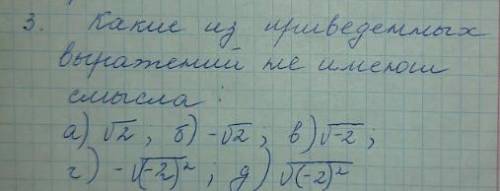 3. Какие из приведенных
выражений не имеют
смысла:
а) √2, б) -√2, в) √-2;
г) -√(-2)²; д) √(-2)²